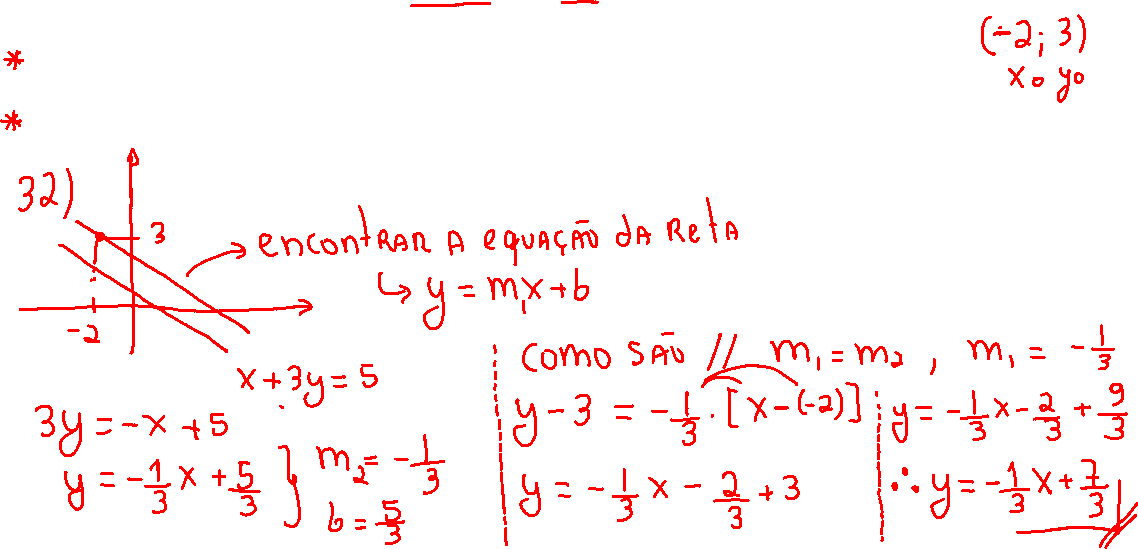 (-2; 3)
x₀ y₀
*
*
32)
3
-2
encontRAR A equAção dA RetA
↳ y = m₁x + b
x + 3y = 5
3y = -x + 5
y = -1/3 x + 5/3 } m₂ = -1/3
b = 5/3
como são // m₁ = m₂ , m₁ = -1/3
y - 3 = -1/3 · [x - (-2)]
y = -1/3 x - 2/3 + 3
y = -1/3 x - 2/3 + 9/3
∴ y = -1/3 x + 7/3